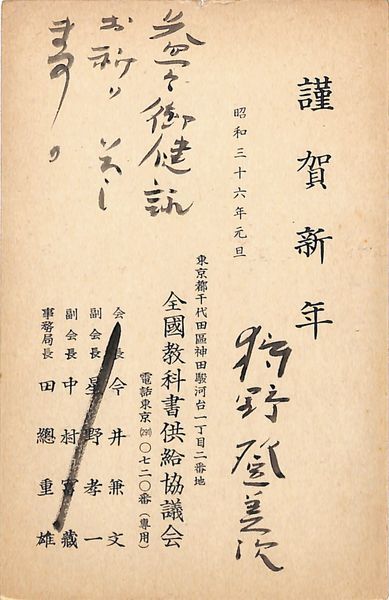 謹賀新年
昭和三十六年元旦
狩野登美次
益々御健
お祈り
東京都千代田區神田駿河台一丁目二番地
全國教科書供給協議会
電話東京(291)〇七二〇番(専用)
会長 今井兼文
副会長 星野孝一
副会長 中村富藏
事務局長 田總重雄